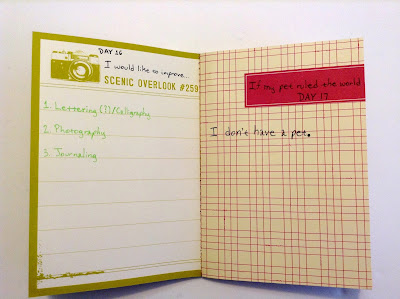 DAY 16
I would like to improve...
SCENIC OVERLOOK #259
1. Lettering (?)/Calligraphy
2. Photography
3. Journaling
If my pet ruled the world
DAY 17
I don't have a pet.